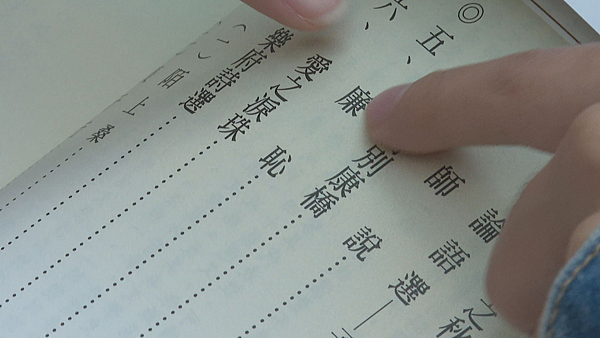 之私
論語選—
師說
別康橋
◎五、廉恥
六、愛之淚珠
樂府詩選
(一)陌上桑